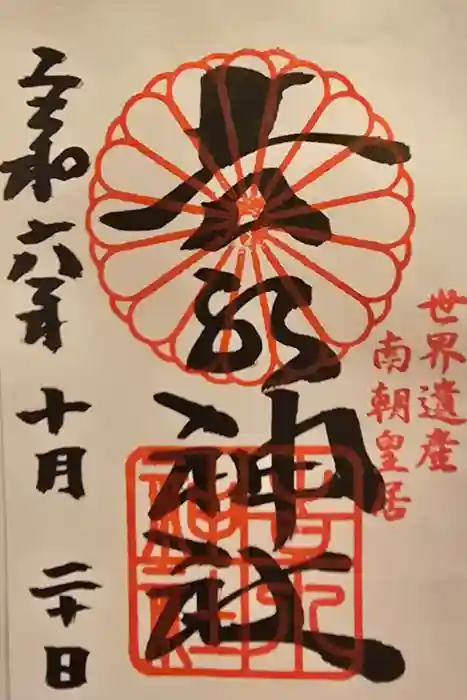 世界遺産
南朝皇居
吉水神社
吉水神社
令和六年十月二十日